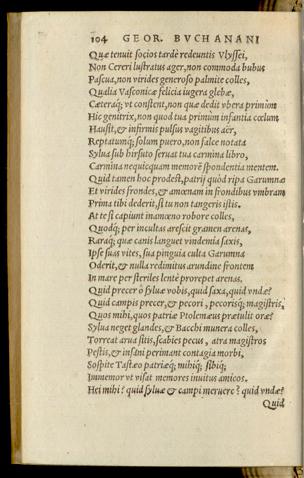 104 GEOR. BVCHANANI
Quæ tenuit socios tardè redeuntis Vlyssei,
Non Cereri lustratus ager, non commoda bubus
Pascua, non virides generoso palmite colles,
Qualia Vasconicæ felicia iugera glebæ,
Cæteraq́; vt constent, non quæ dedit vbera primùm
Hic genitrix, non quod tua primùm infantia cœlum
Hausit, & infirmis pulsus vagitibus aër,
Reptatumq́; solum puero, non salce notata
Sylua sub hirsuto seruat tua carmina libro,
Carmina nequicquam memorē spondentia mentem.
Quid tamen hoc prodest, patrij quòd ripa Garumnæ
Et virides frondes, & amœnam in frondibus vmbram
Prima tibi dederit, si tu non tangeris istis.
At te si capiunt inamœno robore colles,
Quodq́; per incultas arescit gramen arenas,
Raraq́; quæ canis languet vindemia saxis,
Ipse suas vites, sua pinguia culta Garumna
Oderit, & nulla redimitus arundine frontem
In mare per steriles lentè prorepet arenas.
Quid precer ô syluæ vobis, quid saxa, quid vndæ?
Quid campis precer, & pecori, pecorisq́; magistris,
Quos mihi, quos patriæ Ptolemæus prætulit oræ?
Sylua neget glandes, & Bacchi munera colles,
Torreat arua sitis, scabies pecus, atra magistros
Pestis, & insani perimant contagia morbi,
Sospite Tastæo patriæq́; mihiq́; sibiq́;
Immemor vt visat memores inuitus amicos.
Hei mihi? quid syluæ & campi meruere? quid vndæ?
Quid